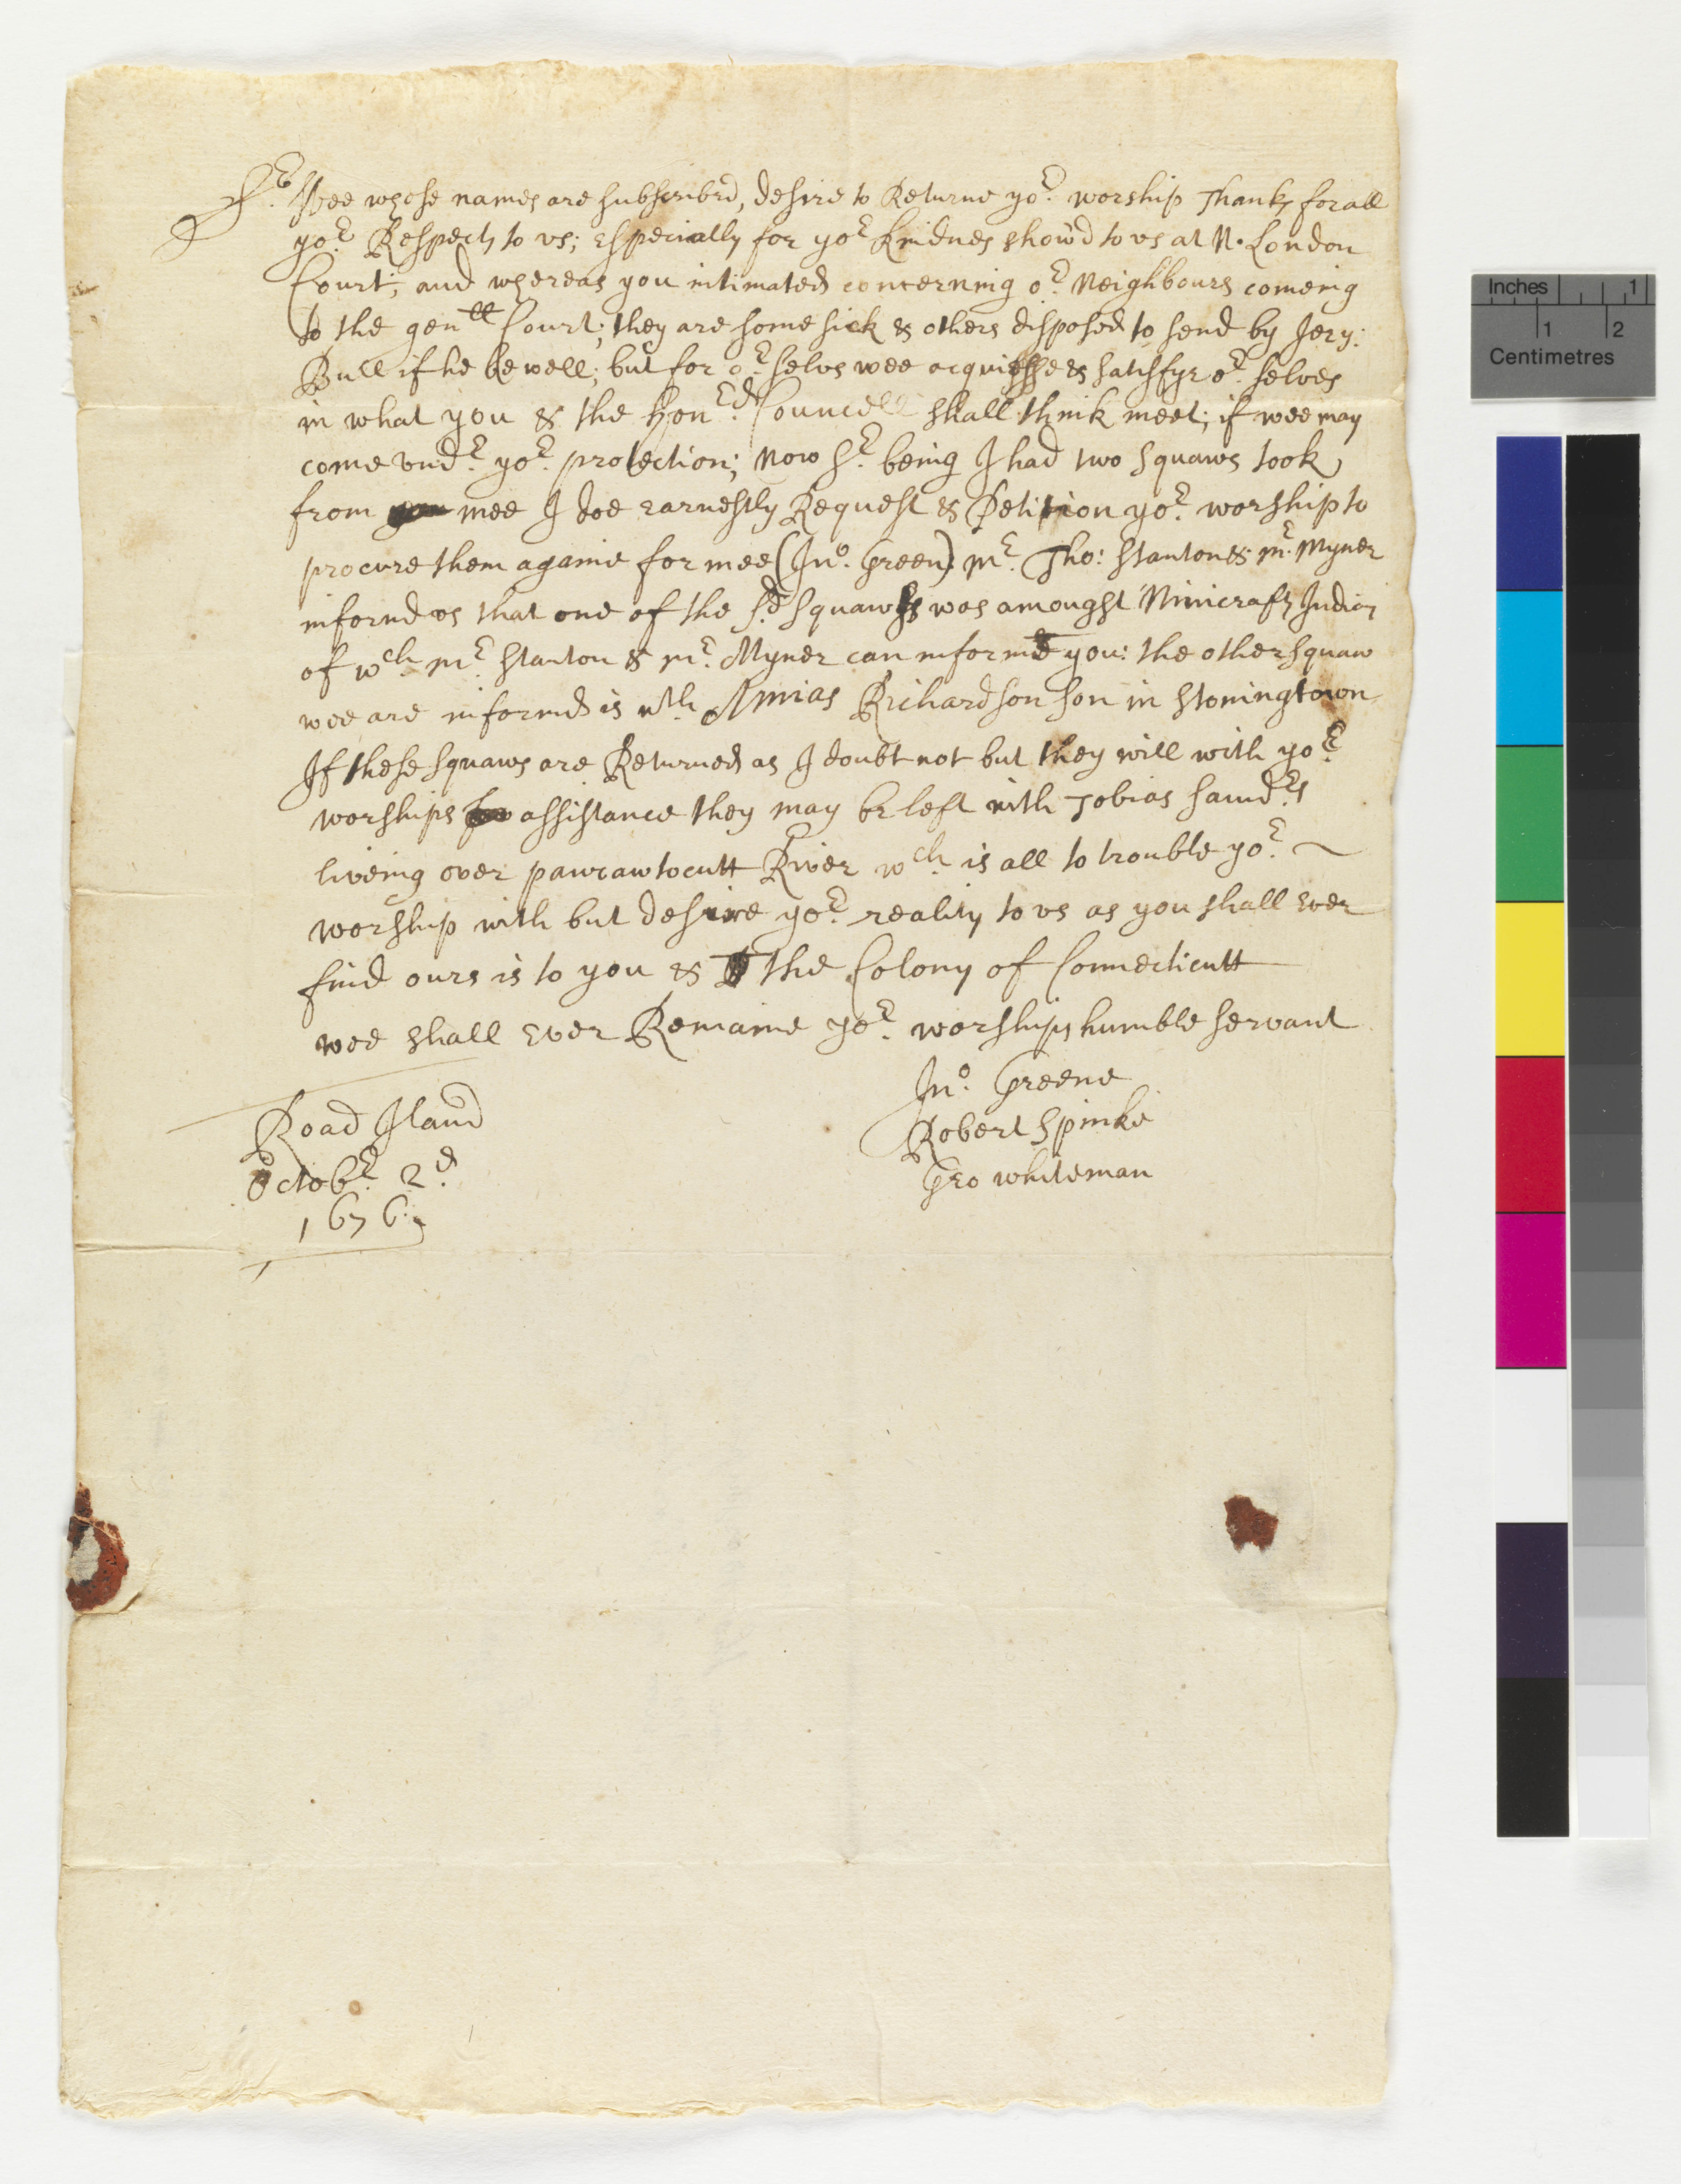 Sr. Wee whose names are subscribed, desire to Returne yor. worship Thanks for all
yor. Respects to vs; Especially for yor. Kindnes show'd to vs at N. London
Court; and whereas you intimated concerning or. Neighbours comeing
to the genll Court; they are some sick & others disposed to send by Jery:
Bull if he be well; but for or. selvs wee acquiesse & satisfye or. selves
in what you & the Honr.d Councell shall think meet; if wee may
come vndr. yor. protection; Now Sr. being I had two squaws took
from mee I doe earnestly Request & Petition yor. worship to
procure them againe for mee (Jno. Green) Mr. Tho: Stanton & Mr. Myner
informd vs that one of the sd. squaws was amongst Ninicrafts Indias
of wch Mr. Stanton & Mr. Myner can informe you: the other squaw
wee are informd is wth. Amias Richardson son in Stoningtown
If these squaws are Returned as I doubt not but they will with yor.
worships assistance they may be left with Tobias Saundrs
liveing over pawcawtocutt River wch. is all to trouble yor.
worship with but desire yor. reality to vs as you shall Ever
find ours is to you & the Colony of Connecticutt
wee shall Ever Remaine yor. worships humble servant
Jno. Greene
Robert Spinke
Geo whiteman
Road Iland
Octobr. 2d.
1676